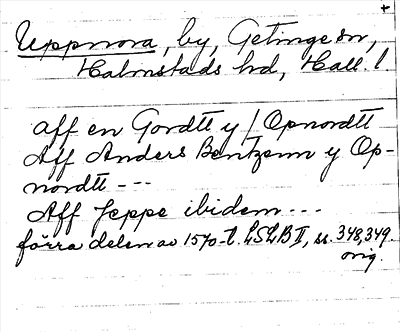 +
Uppnora, by, Getinge sn,
Halmstads hd, Hall. l.
aff en Gordtt y / Opnordtt
Aff Anders Bentzenn y Op-
nordtt ---
Aff Jeppe ibidem ---
förra delen av 1570-t. LSLB II, ss. 348, 349.
orig.